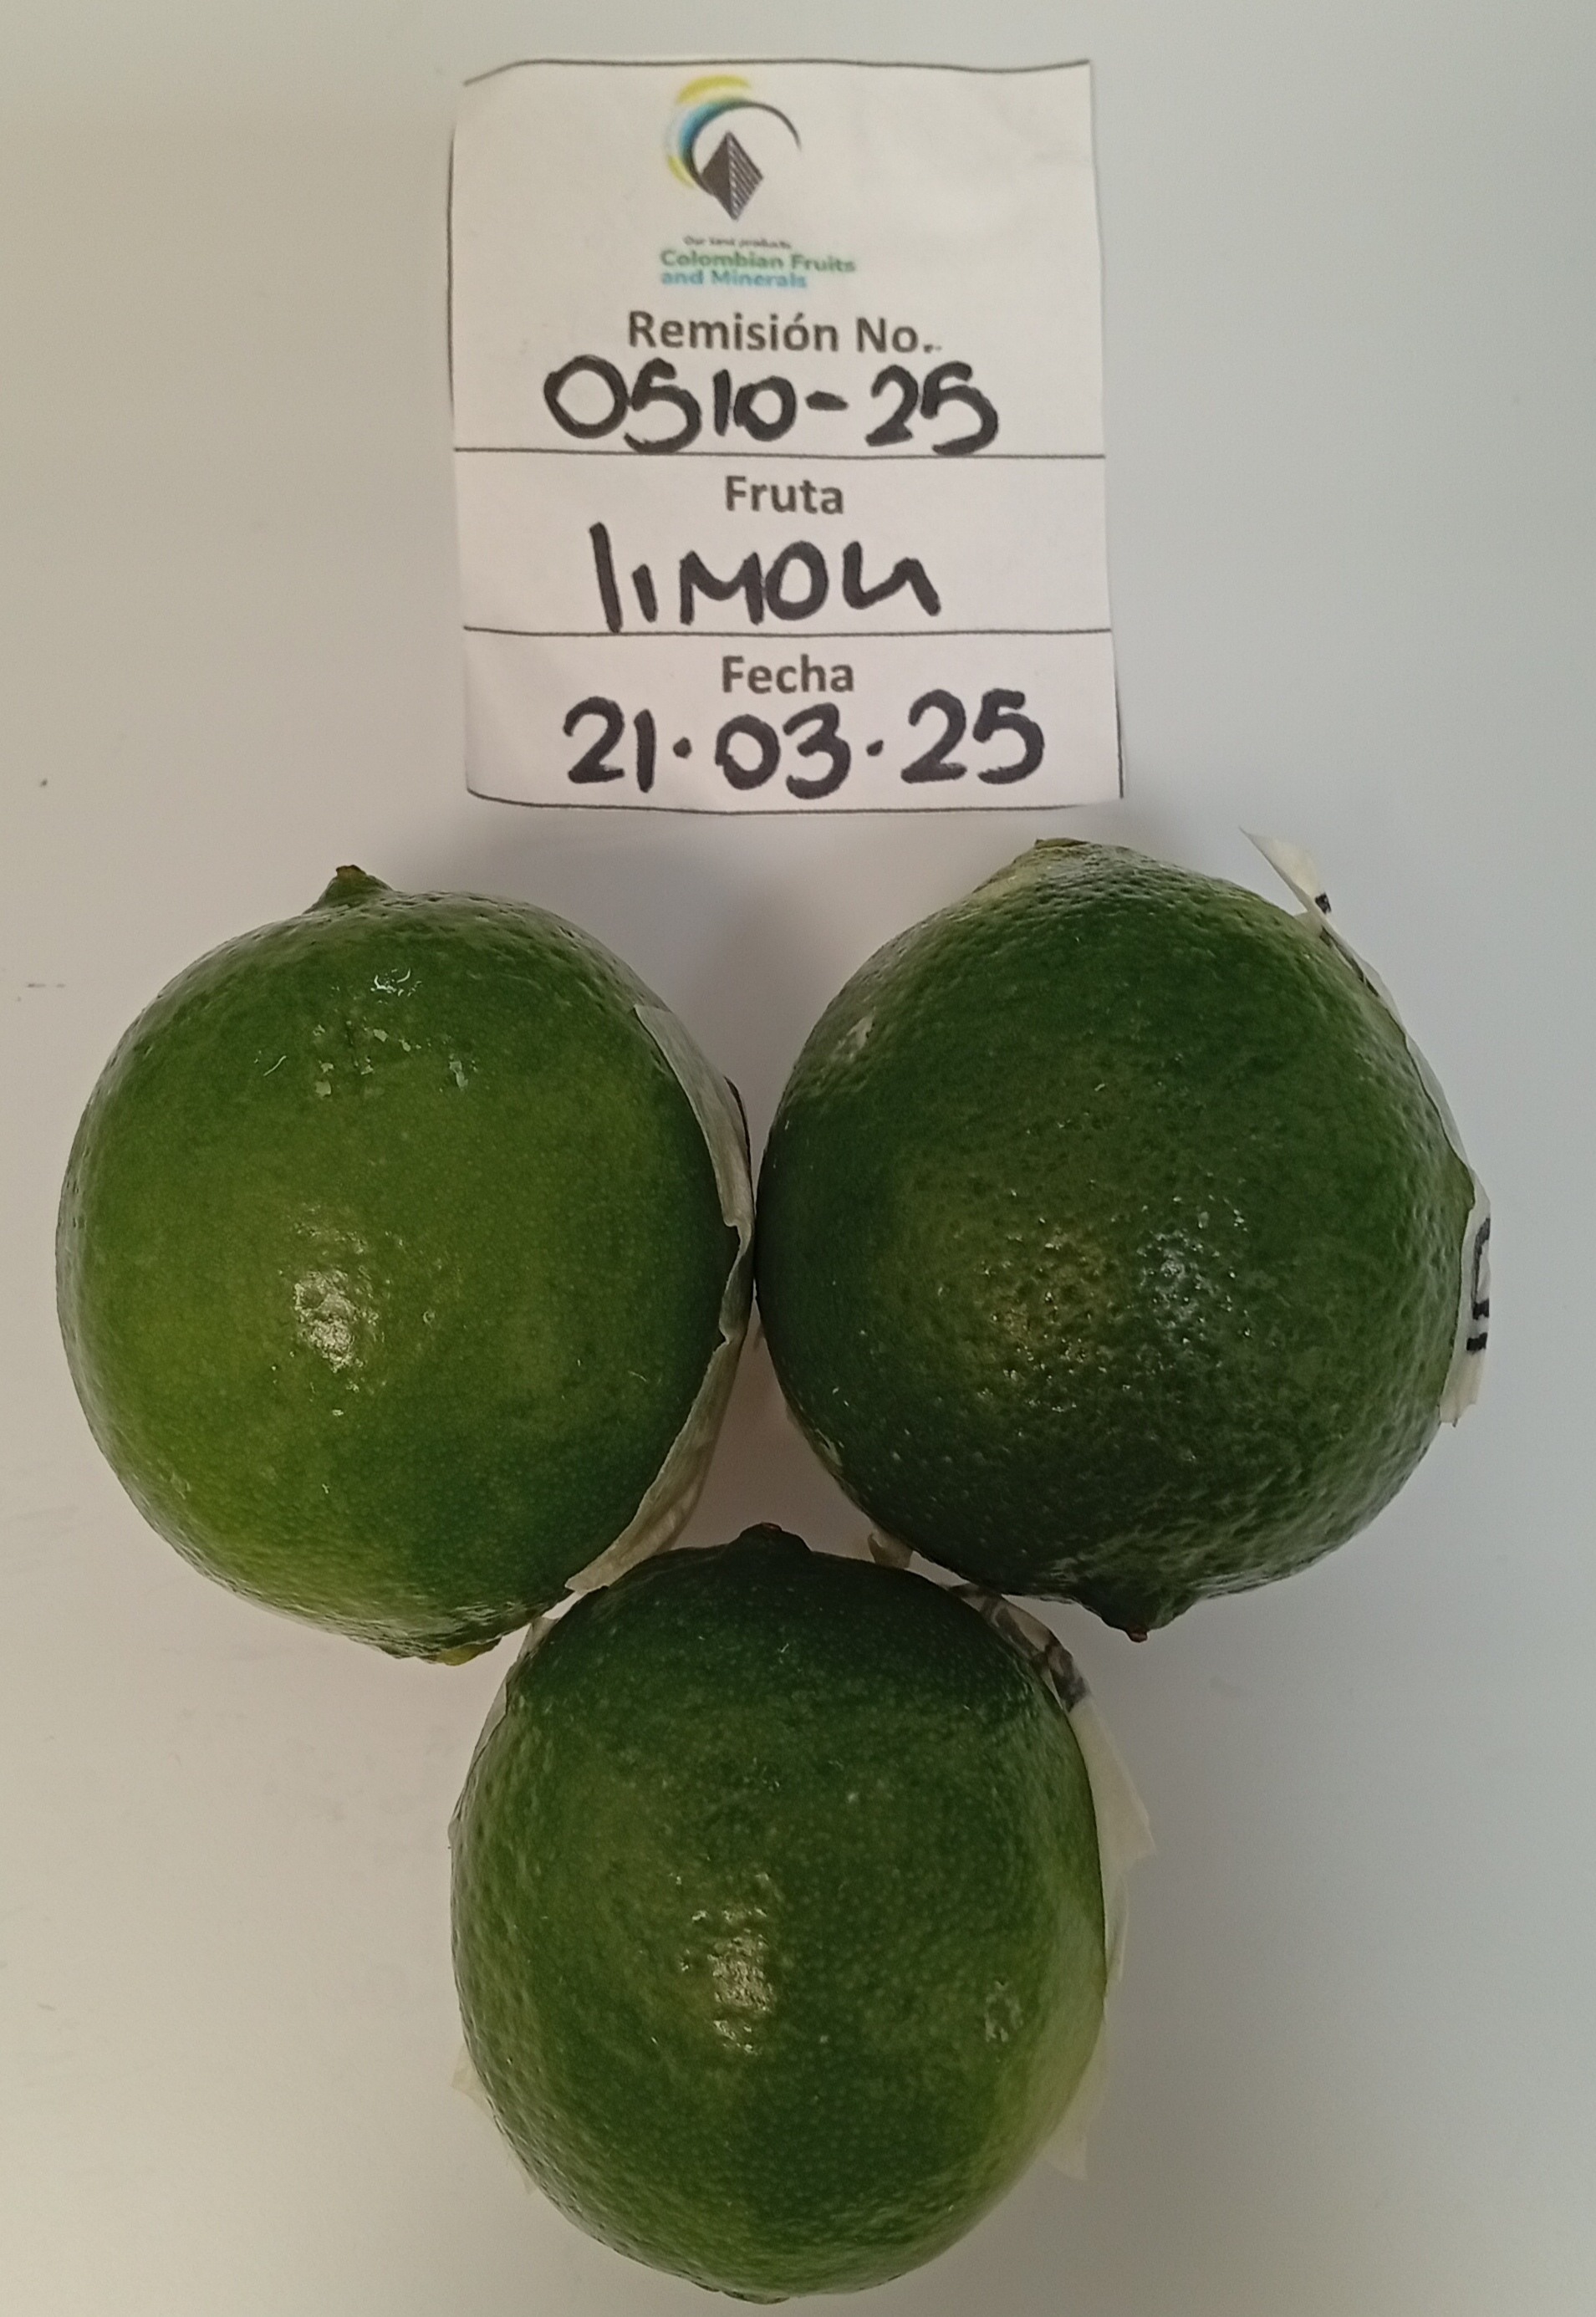 Our land products
Colombian Fruits
and Minerals
Remisión No.
0510-25
Fruta
limon
Fecha
21.03.25